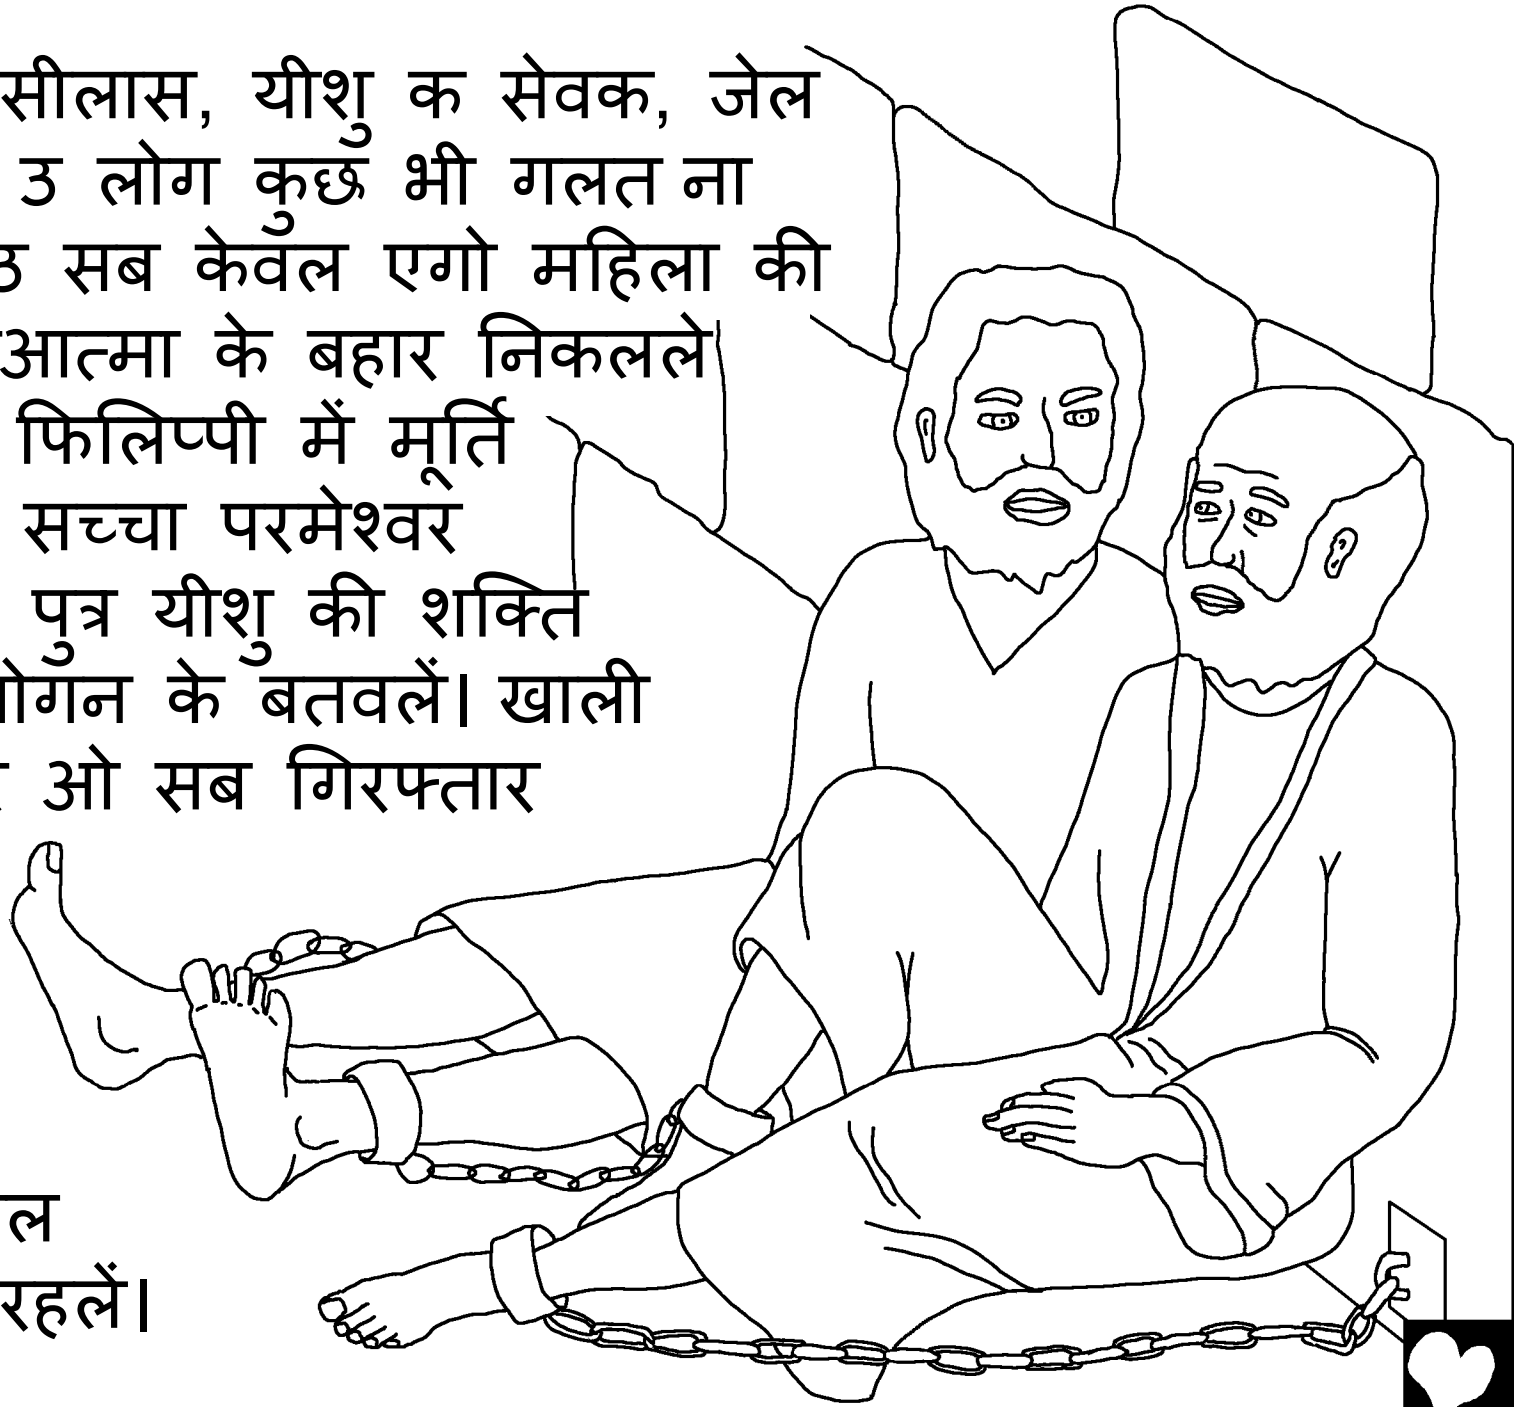 सीलास, यीशु क सेवक, जेल
उ लोग कुछ भी गलत ना
सब केवल एगो महिला की
आत्मा के बहार निकलले
फिलिप्पी में मूर्ति
सच्चा परमेश्वर
पुत्र यीशु की शक्ति
के बतवलें। खाली
ओ सब गिरफ्तार
रहलें।